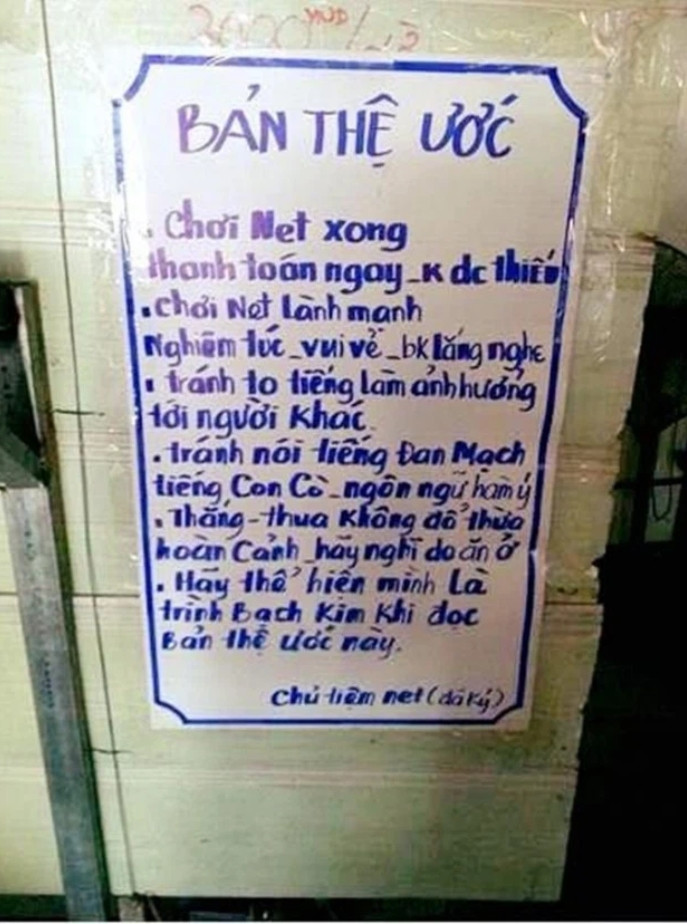 BẢN THỆ ƯỚC
. Chơi Net xong
thanh toán ngay_K dc thiếu
. chơi Net Lành mạnh
Nghiêm túc_vui vẻ_bk lắng nghe
. tránh to tiếng làm ảnh hưởng
tới người Khác.
. tránh nói tiếng Đan Mạch
tiếng Con Cò_ngôn ngữ hàm ý
. Thắng-thua Không đổ thừa
hoàn Cảnh_hãy nghĩ do ăn ở
. Hãy thể hiện mình Là
trình Bạch Kim Khi đọc
Bản thệ ước này.
Chủ tiệm net (đã ký)